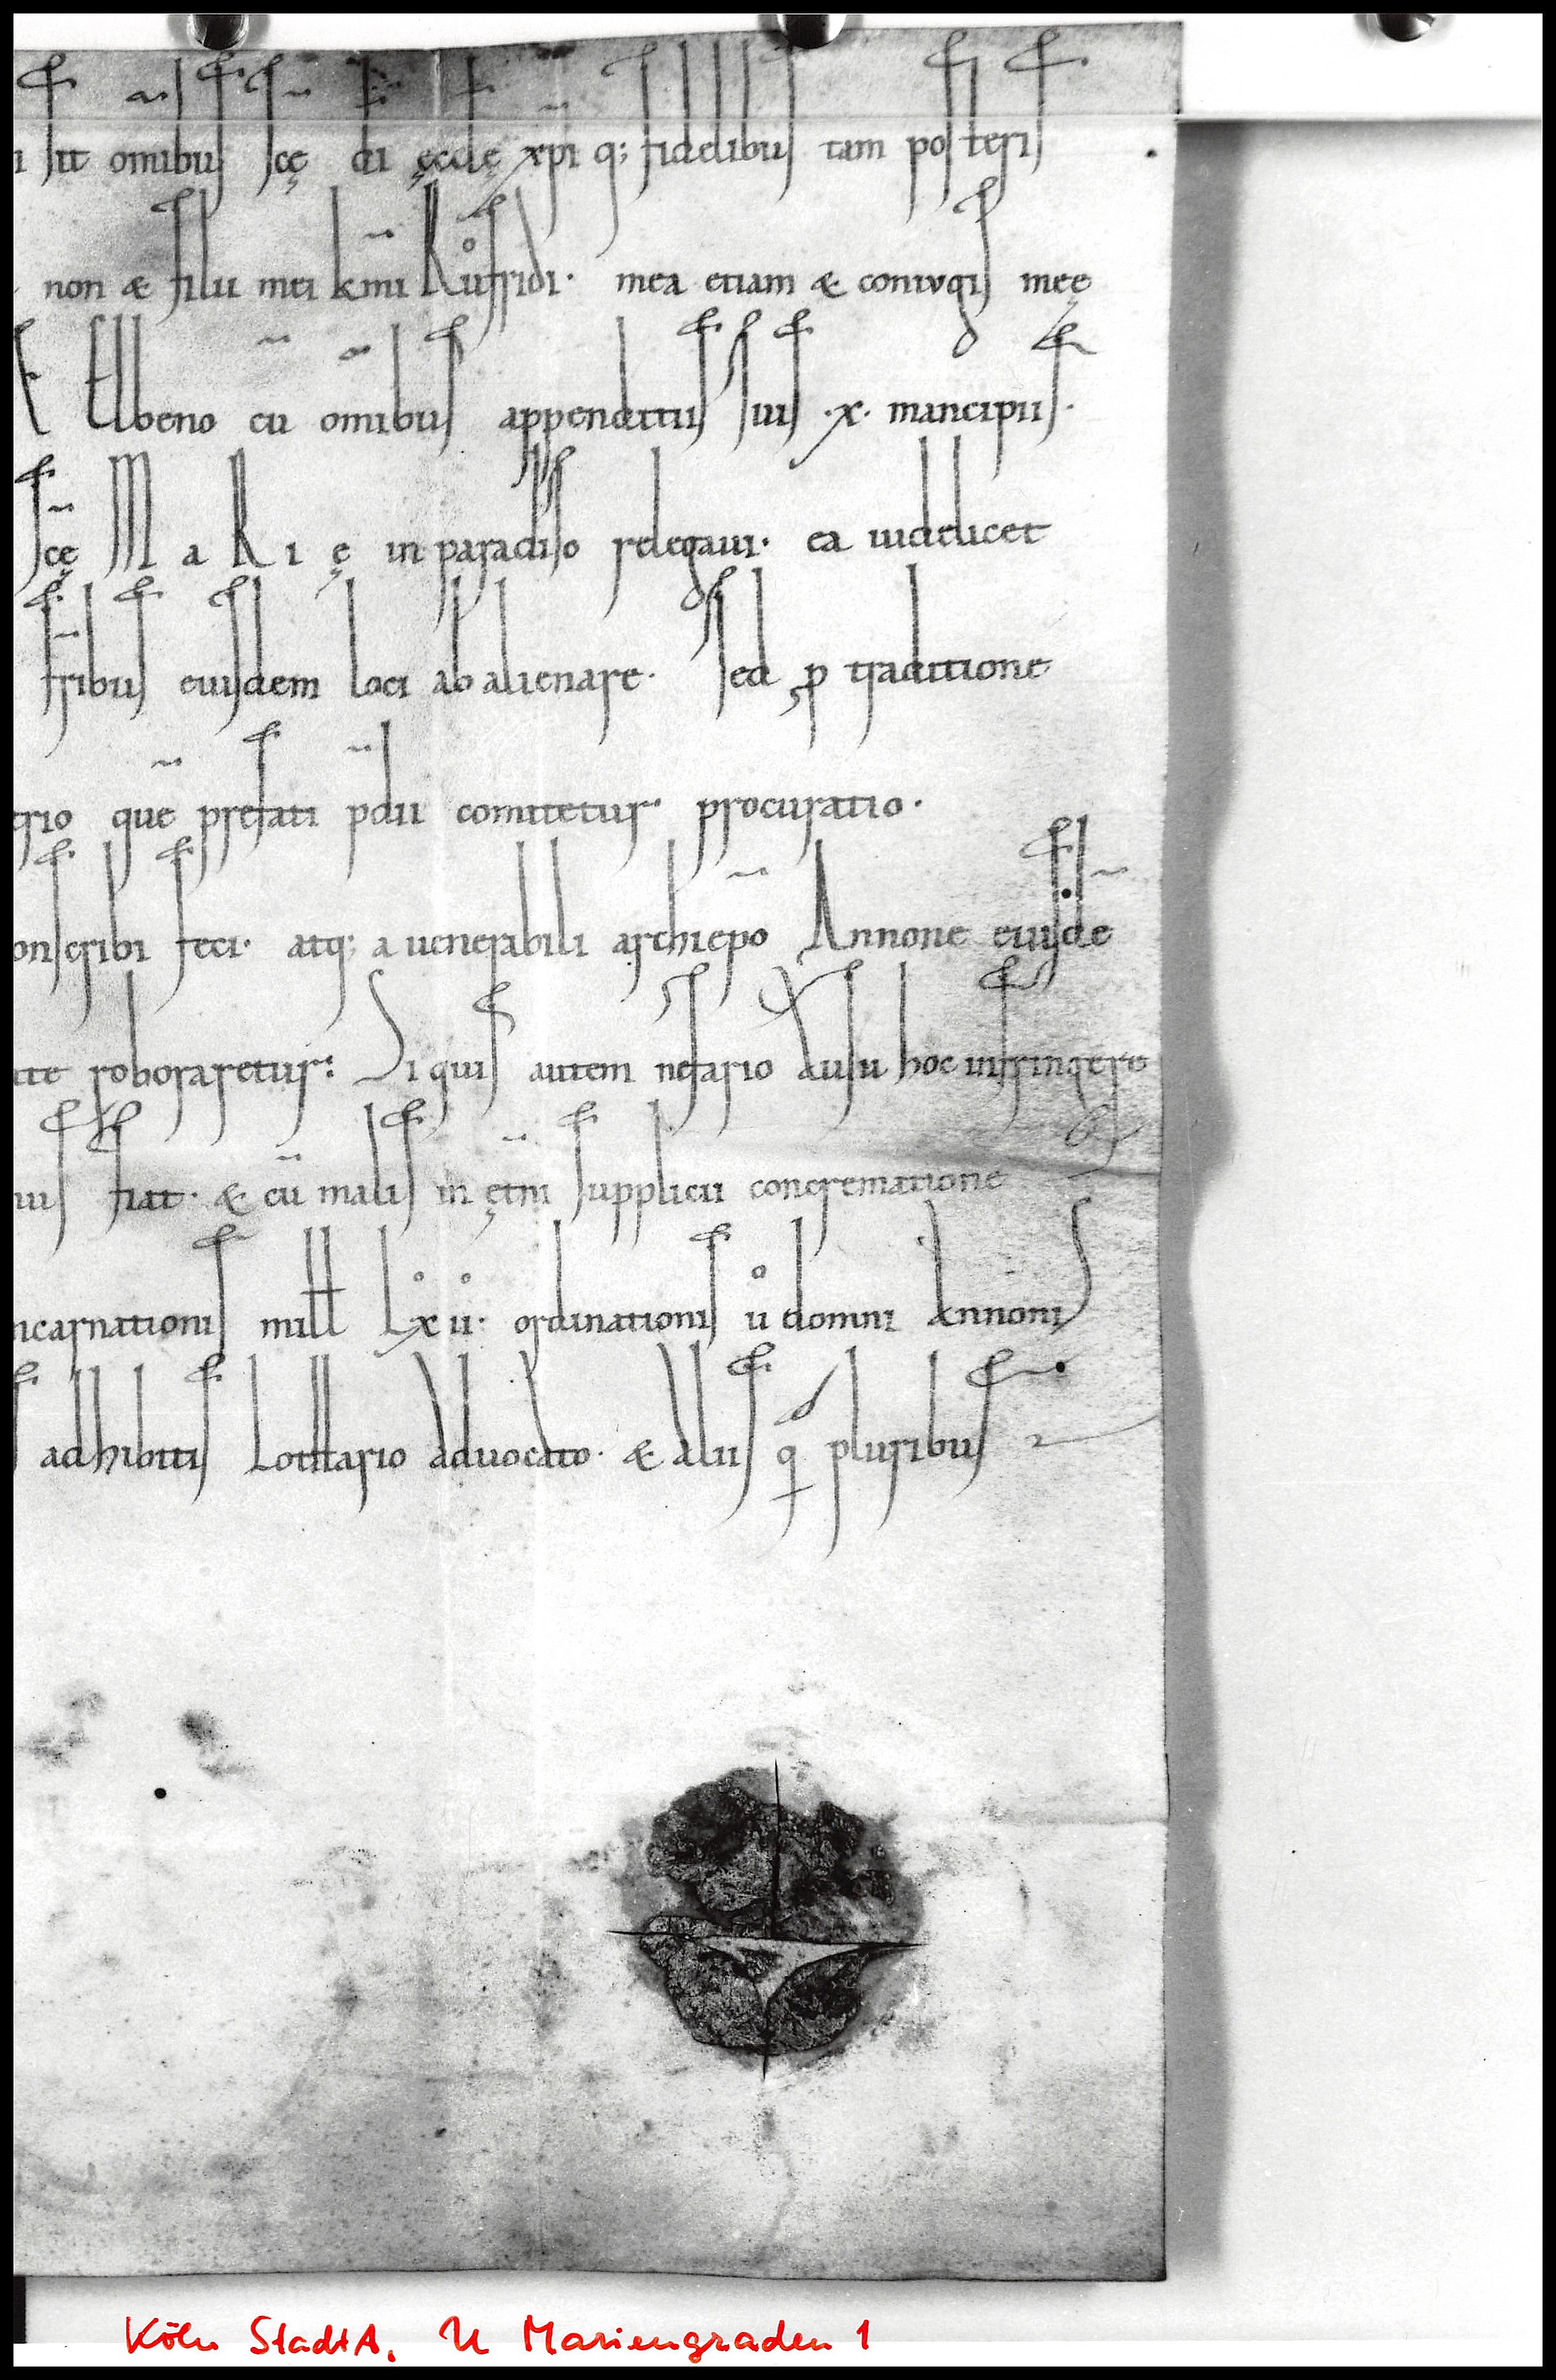 i sit omibus scę di ęcclę xpi q; fidelibus tam posteris
non & filii mei kmi Růtfridi· mea etiam & coniugis meę
Elbeno cū omibus appenditiis suis ·x· mancipiis·
scę MaRię in paradiso relegaui· ea uidelicet
fribus eiusdem loci ab alienare· Sed p traditione
trio que prefati pdii comitetur procuratio·
onscribi feci· atq; a uenerabili archiepo Annone eiusde
ate roboraretur: Si quis autem nefario ausu hoc infringere
nus fiat· & cū malis in ętni supplicii concrematione
ncarnationis mill Lxii· ordinationis ů domni Annonis
s adhibitis Lothario aduocato· & aliis q pluribus
Köln StadtA. U Mariengraden 1